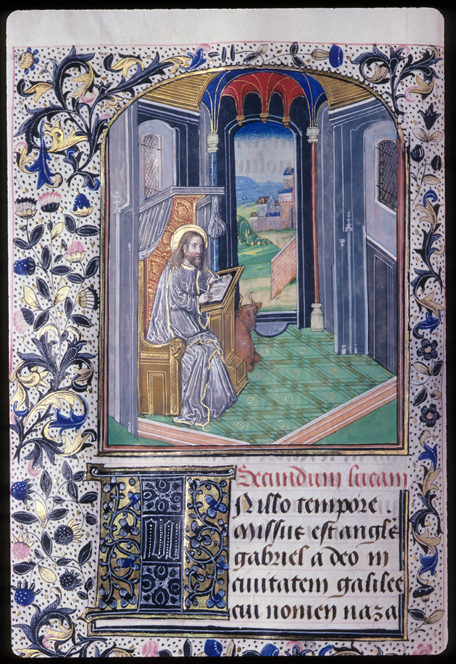 Secundum lucam
IN illo tempore
Missus est angle
gabriel a deo in
ciuitatem galilee
cui nomen naza